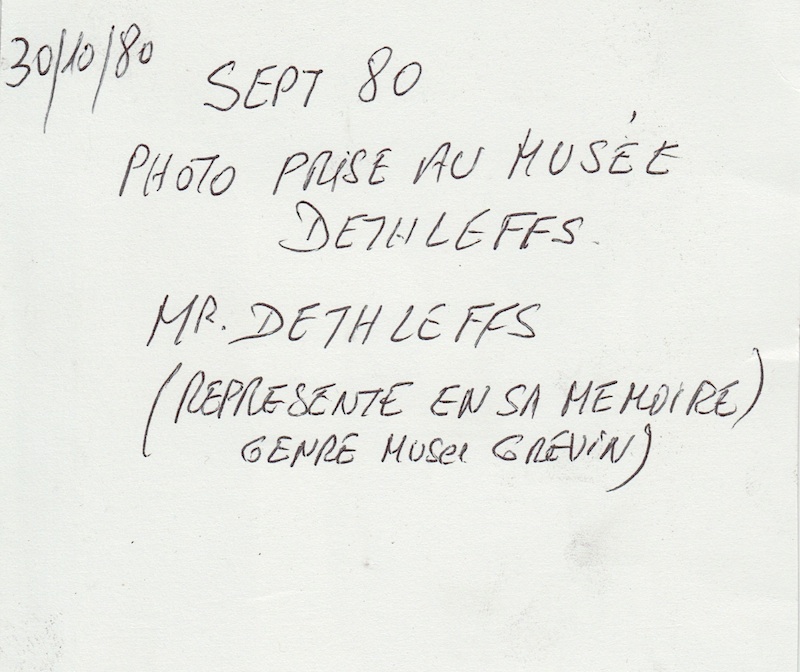 30/10/80
SEPT 80
PHOTO PRISE AU MUSÉE
DETHLEFFS.
MR. DETHLEFFS
(REPRESENTE EN SA MEMOIRE)
GENRE MUSEE GREVIN)